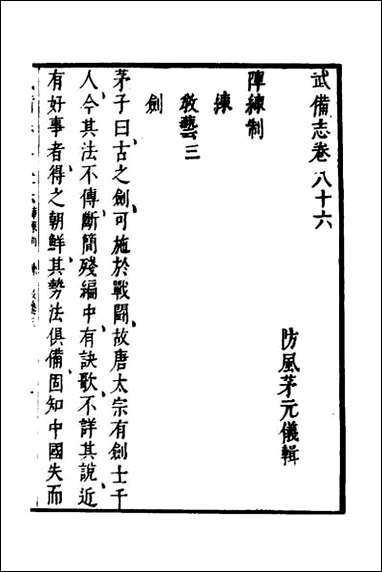 武備志卷八十六
防風茅元儀輯
陣練制
練
教藝三
劍
茅子曰古之劍可施於戰鬬故唐太宗有劍士千
人今其法不傳斷簡殘編中有訣歌不詳其說近
有好事者得之朝鮮其勢法俱備固知中國失而